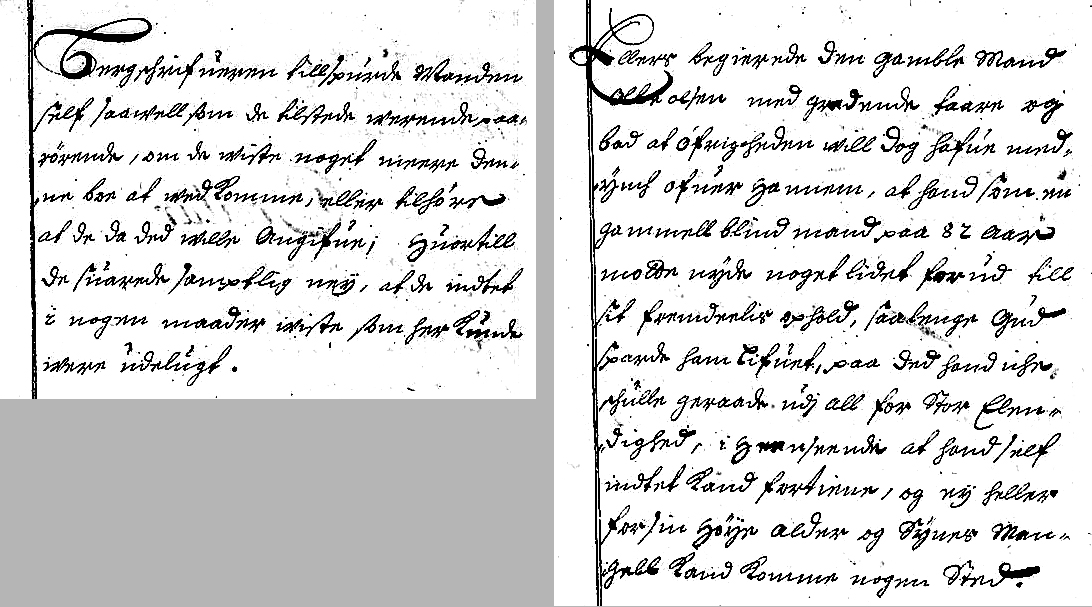 Sorgschrifueren tillspurde Manden
self saawell som de tilstede werende paa-
rörende, om de wiste noget meere den-
ne boe at wedkomme, eller tilhöre
at de da ded wille Angifue; Huortill
de suarede samptlig ney, at de indtet
i nogen maader wiste som her kunde
were udelugt.
Ellers begierede den gamble Mand
Olle olsen med grædende taare og
bad at öfrigheden will dog hafue med-
ynch ofuer Hannem, at hand som en
gammell blind mand paa 82 Aar
motte nyde noget lidet forud till
sit fremdeelis ophold, saalenge Gud
sparde ham Lifuet, paa ded hand iche
schulle geraade udj all for Stor Elen-
dighed, i Henseende at hand self
indtet kand fortiene, og ey heller
for sin Höye alder og Synes Man-
gell kand komme nogen Sted.